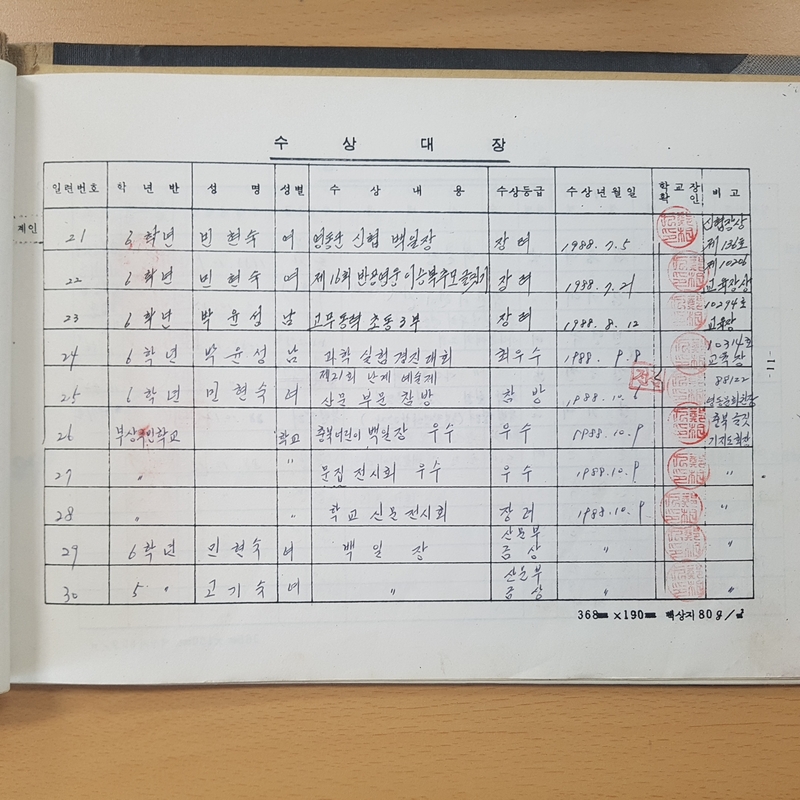 수 상 대 장
일련번호 학 년 반 성 명 성별 수 상 내 용 수상등급 수상년월일 학교장 확인 비고
계인
21 6학년 민현숙 여 영동군 신협 백일장 장려 1988. 7. 5 신협장상 제136호
22 6학년 민현숙 여 제16회 반공영웅 이승복추모글짓기 장려 1988. 7. 21 제10206 교육장상
23 6학년 박윤성 남 고무동력 초등3부 장려 1988. 8. 12 10294호 교육장
24 6학년 박윤성 남 과학 실험 경진대회 최우수 1988. 9. 8 10314호 교육장
25 6학년 민현숙 여 제21회 난계 예술제 산문 부문 참방 참방 1988. 10. 6 88122
26 학교 충북어린이 백일장 우수 우수 1988. 10. 9 충북 글짓기지도회장
27 〃 〃 문집 전시회 우수 우수 1988. 10. 9 〃
28 〃 〃 학교 신문 전시회 장려 1988. 10. 9 〃
29 6학년 민현숙 여 백일장 산문부 금상 〃 〃
30 5 〃 고기숙 여 〃 산문부 금상 〃 〃
368㎜ ×190㎜ 백상지 80g/㎡